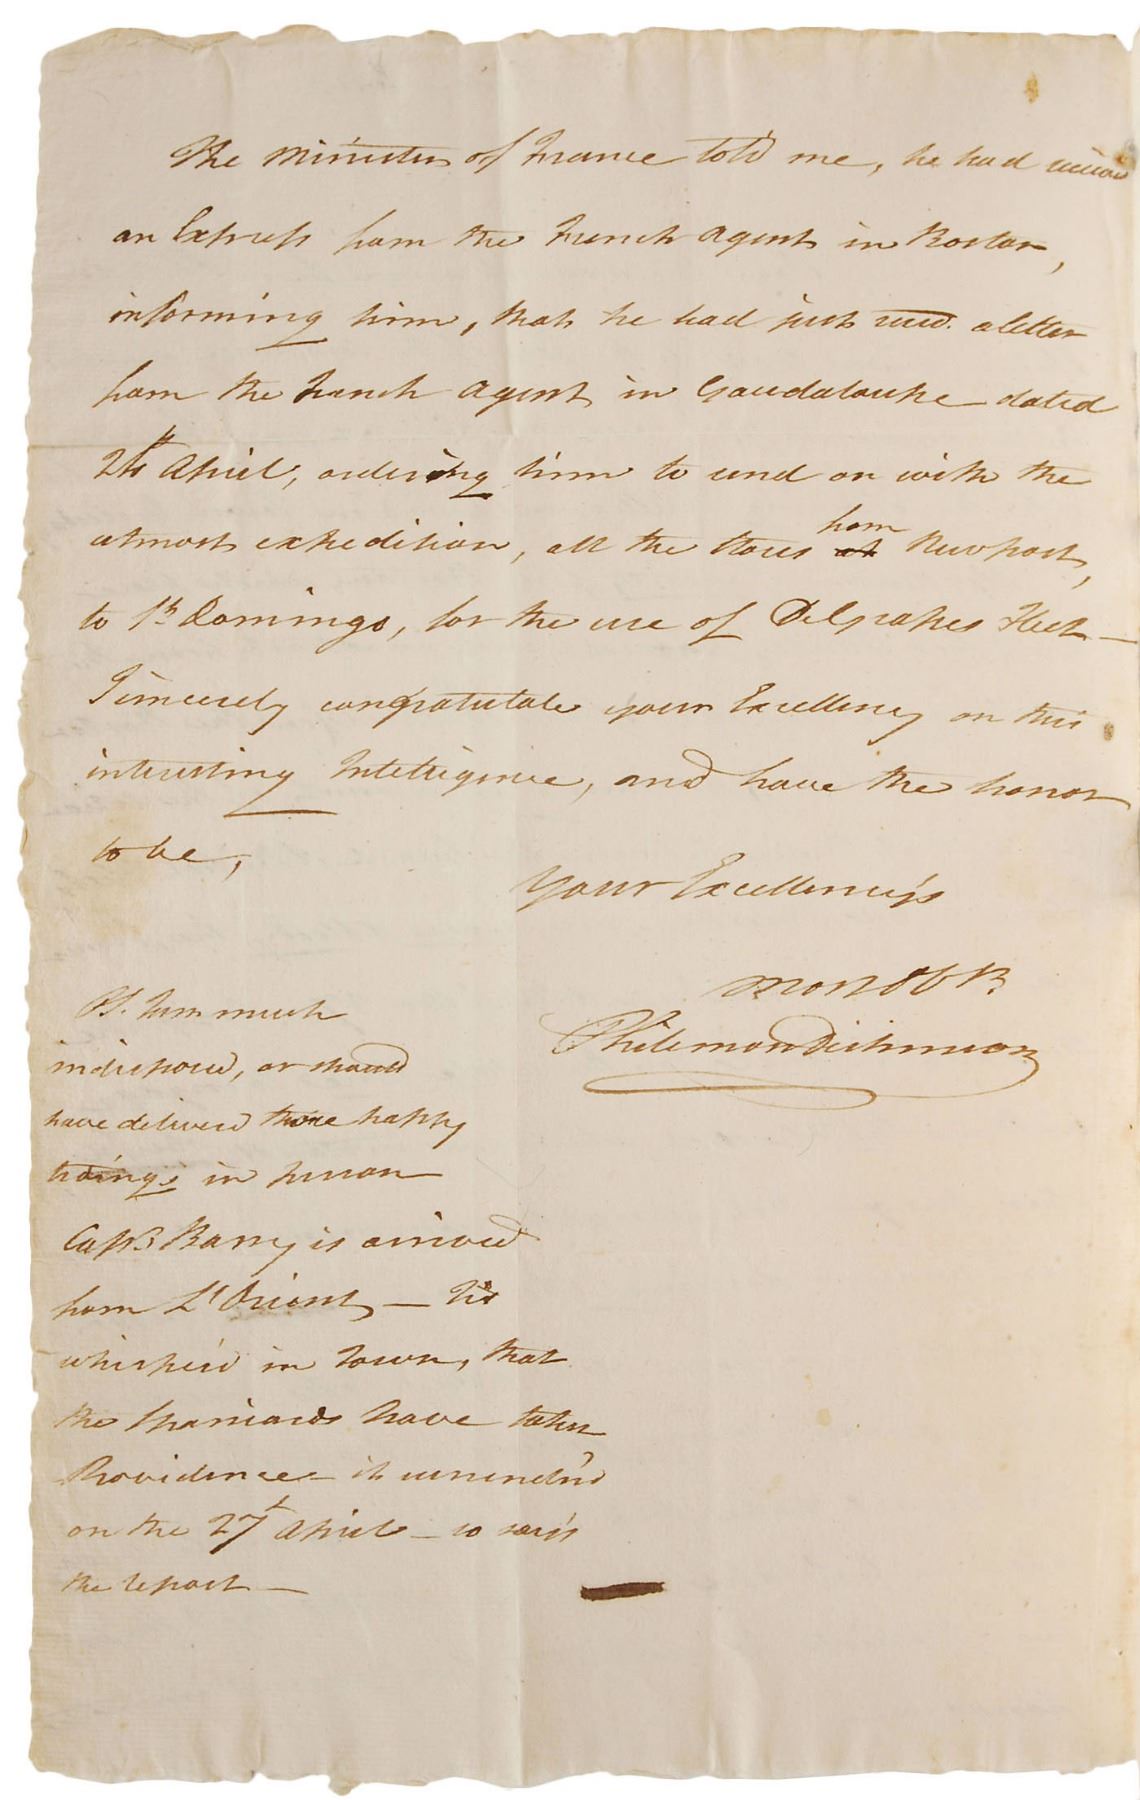 The Minister of France told me, he had
an Express from the French Agent in Boston,
informing him, that he had just recd. a letter
from the French Agent in Gaudaloupe dated
24th April, ordering him to send on with the
utmost expedition, all the stores at from Newport,
to St. Domingo, for the use of DeGrasses Fleet —
I sincerely congratulate your Excellency on this
interesting Intelligence, and have the honor
to be,
Your Excellency's
most Ob St.
Philemon Dickinson
PS. I'm much
indisposed, or should
have deliverd these happy
tidings in person
Capt. Barry is arrived
from L'Orient — Tis
whisper'd in Town, that
the Spaniards have taken
Providence — it surrender'd
on the 27t April — so says
the report —